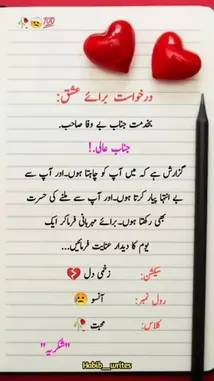 🥀🤕💯
درخواست برائے عشق:
بخدمت جناب بے وفا صاحب.
جناب عالی.!
گزارش ہے کہ میں آپ کو چاہتا ہوں۔اور آپ سے
بے انتہا پیار کرتا ہوں۔اور آپ سے ملنے کی حسرت
بھی رکھتا ہوں۔برائے مہربانی فرماکر ایک
یوم کا دیدار عنایت فرمائیں...
سیکشن: زخمی دل 💔
رول نمبر: آنسو 😥
کلاس: محبت 🥀
"شکریہ"
Habib__writes